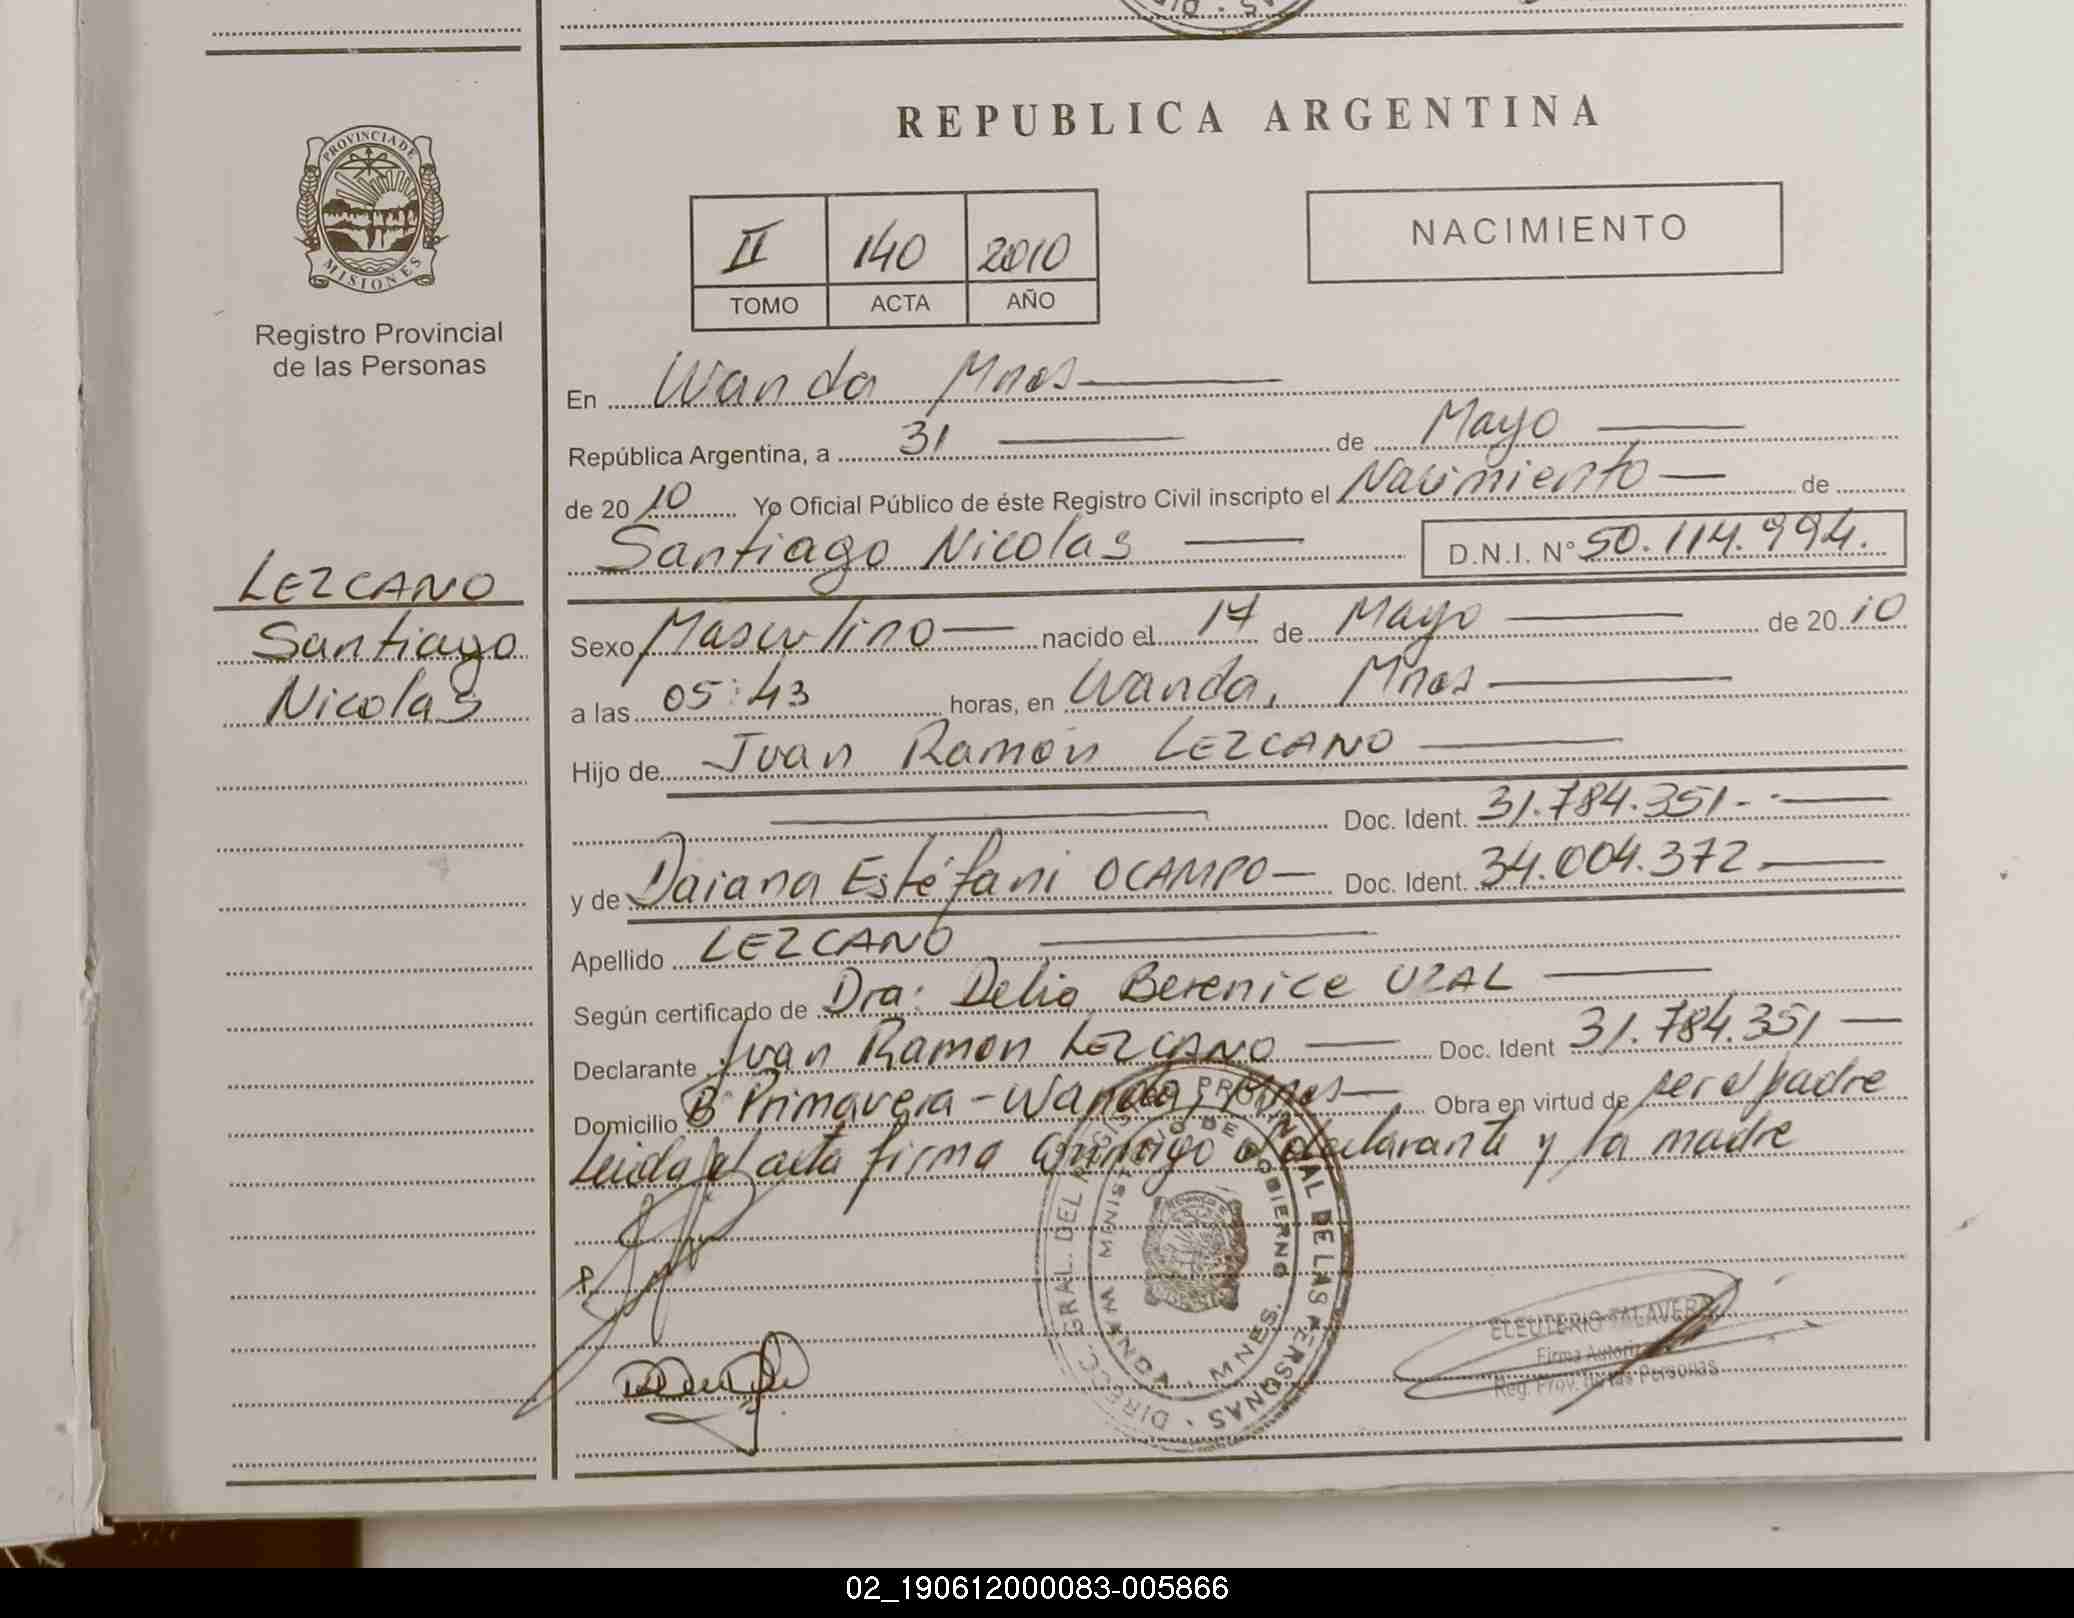 REPUBLICA ARGENTINA
PROVINCIA DE
MISIONES
Registro Provincial
de las Personas
II 140 2010
TOMO ACTA AÑO
NACIMIENTO
En Wanda Mnes
República Argentina, a 31 de Mayo
de 20 10 Yo Oficial Público de éste Registro Civil inscripto el Nacimiento de
Santiago Nicolas D.N.I. N° 50.114.994.
LEZCANO
Santiago
Nicolas
Sexo Masculino nacido el 17 de Mayo de 20 10
a las 05:43 horas, en Wanda, Mnes
Hijo de Juan Ramón LEZCANO
Doc. Ident. 31.784.351
y de Daiana Estéfani OCAMPO Doc. Ident. 34.004.372
Apellido LEZCANO
Según certificado de Dra: Delia Berenice UZAL
Declarante Juan Ramon LEZCANO Doc. Ident 31.784.351
Domicilio B° Primavera - Wanda, Mnes Obra en virtud de ser el padre
Leida el acta firma conmigo el declarante y la madre
DIRECC. GRAL. DEL REGISTRO PROVINCIAL DE LAS PERSONAS
MINISTERIO DE GOBIERNO
WANDA MNES.
ELEUTERIO TALAVERA
Firma Autoriz
Reg. Prov. de las Personas
02_190612000083-005866